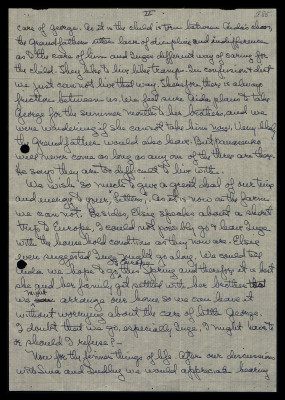 II
care of George. As it is the child is torn between Aida's ideas,
the Grandfathers utter lack of discipline and indifference
as to the care of him and Inge's different way of caring for
the child. They like to live like tramps. In confusion and dirt
we just can not live that way. Therefore there is always
friction between us. We feel sure Aida plans to take
George for the summer months to her brothers, and we
were wondering if she can not take him now. Very likely
the Grandfather would also leave. But
will never come as long as any one of the three are there
he says they are too difficult to live with.
We wish so much to give a great deal of our time
and energy to your, but as it is now at the farm
we can not. Besides, Elsie speaks about a short
Trip to Europe, I could not possibly go & leave Inge
with the household conditions as they now are. Elsie
even suggested Inge might go along. We could tell
Aida we hope to go to Europe this Spring and therefore it is best
she and her family get settled with her brother that
we might arrange our home so we can leave it
without worrying about the care of little George.
I doubt that we go, especially Inge, I might have to
or should I refuse? —
Now for the finer things of life. After our discussions
with Lina and we would appreciate hearing